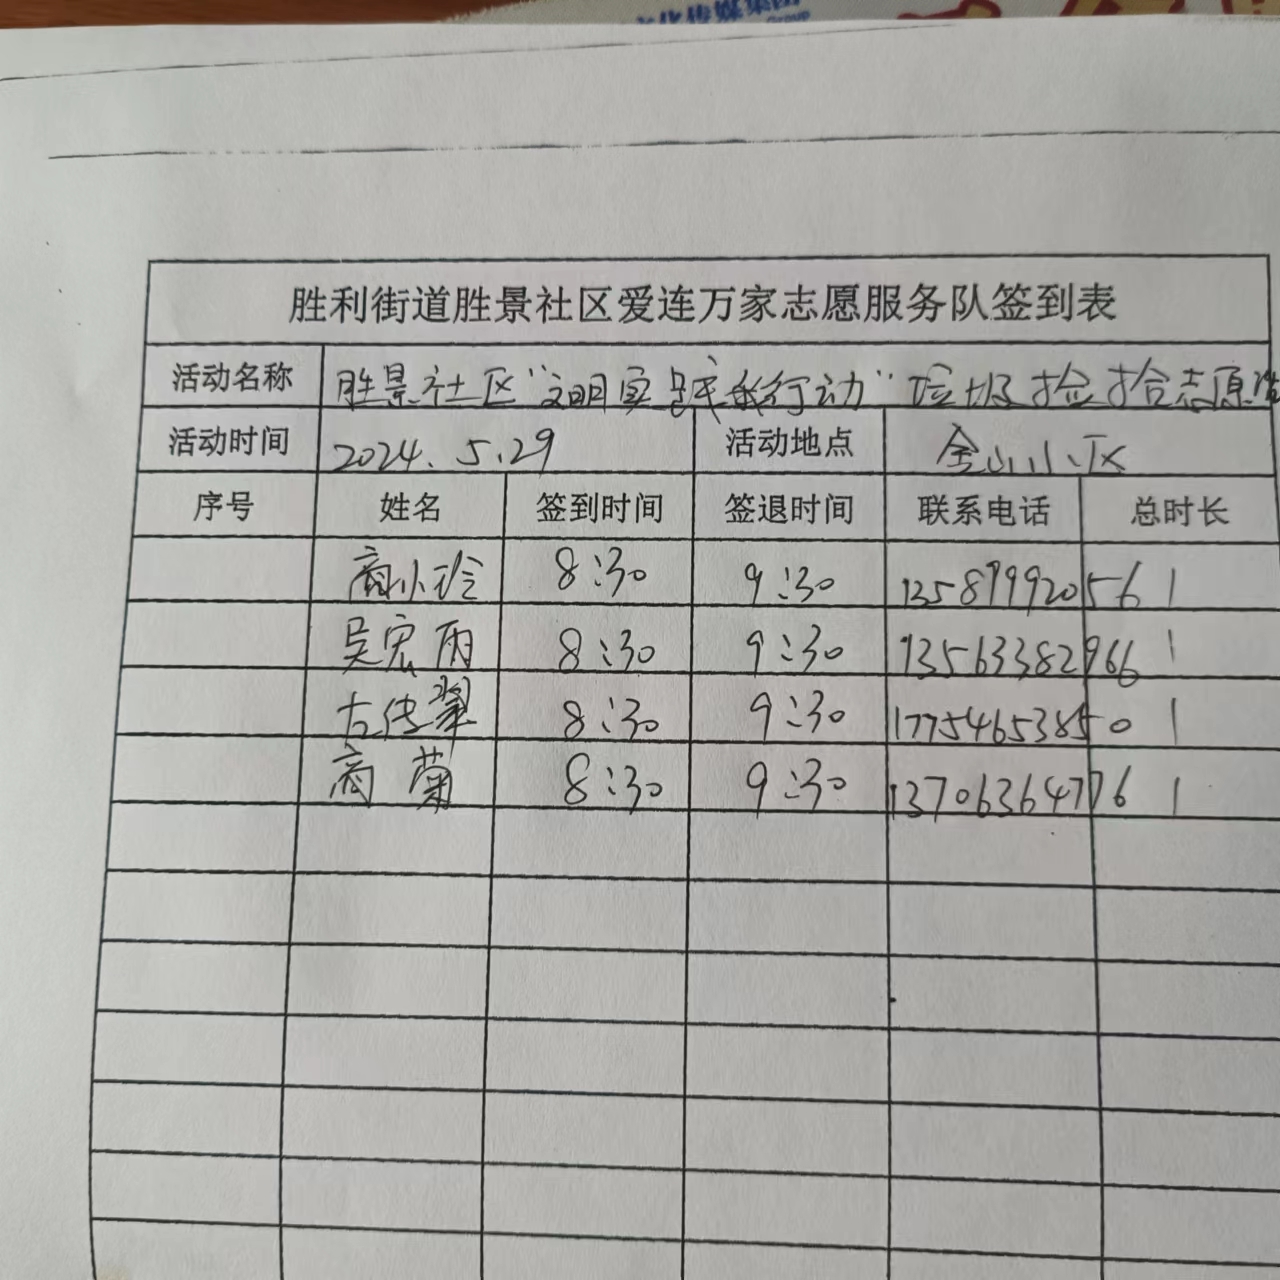 文化传媒集团
Group
胜利街道胜景社区爱连万家志愿服务队签到表
活动名称 胜景社区“文明实践我行动”垃圾捡拾志愿
活动时间 2024.5.29 活动地点 金山小区
序号 姓名 签到时间 签退时间 联系电话 总时长
商小玲 8:30 9:30 13589992056 1
吴宏雨 8:30 9:30 13563382966 1
古传翠 8:30 9:30 17754653850 1
商菊 8:30 9:30 13706364776 1